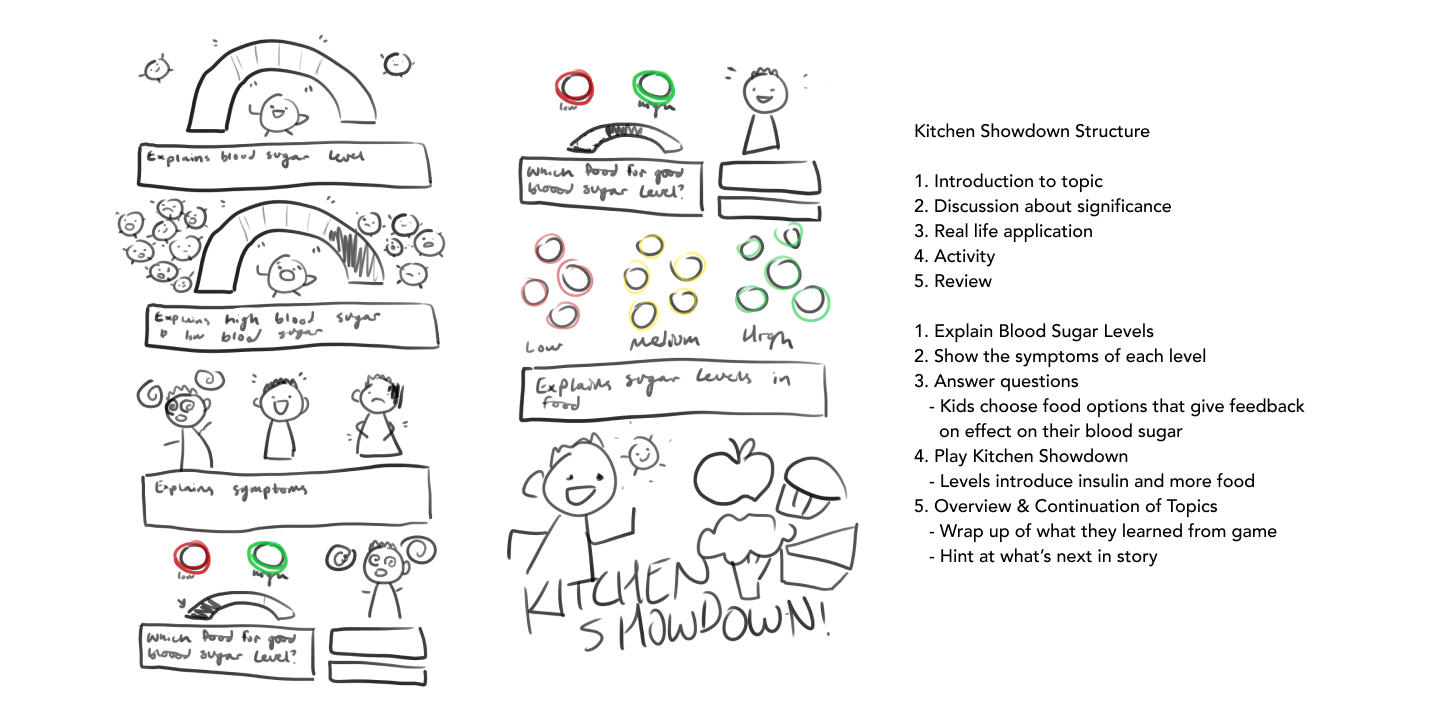 Explains blood sugar level
Explains high blood sugar
& low blood sugar
Explains symptoms
low
high
Which food for good
bloood sugar level?
low
high
Which food for good
bloood sugar level?
Low
Medium
High
Explains sugar levels in
food
KITCHEN
SHOWDOWN!
Kitchen Showdown Structure
1. Introduction to topic
2. Discussion about significance
3. Real life application
4. Activity
5. Review
1. Explain Blood Sugar Levels
2. Show the symptoms of each level
3. Answer questions
- Kids choose food options that give feedback
on effect on their blood sugar
4. Play Kitchen Showdown
- Levels introduce insulin and more food
5. Overview & Continuation of Topics
- Wrap up of what they learned from game
- Hint at what's next in story